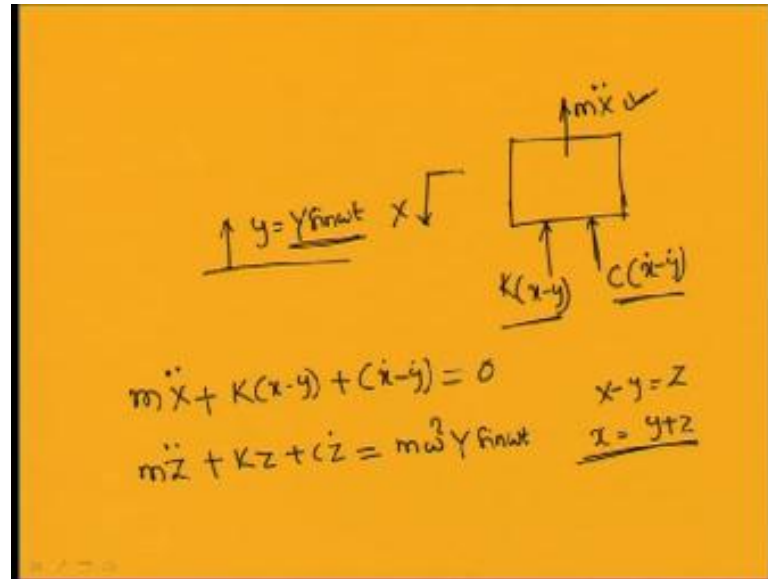 mẍ
y = Y sinωt x
K(x-y) C(ẋ-ẏ)
mẍ + K(x-y) + C(ẋ-ẏ) = 0
x-y = z
mz̈ + Kz + cż = mω²Y sinωt
x = y+z